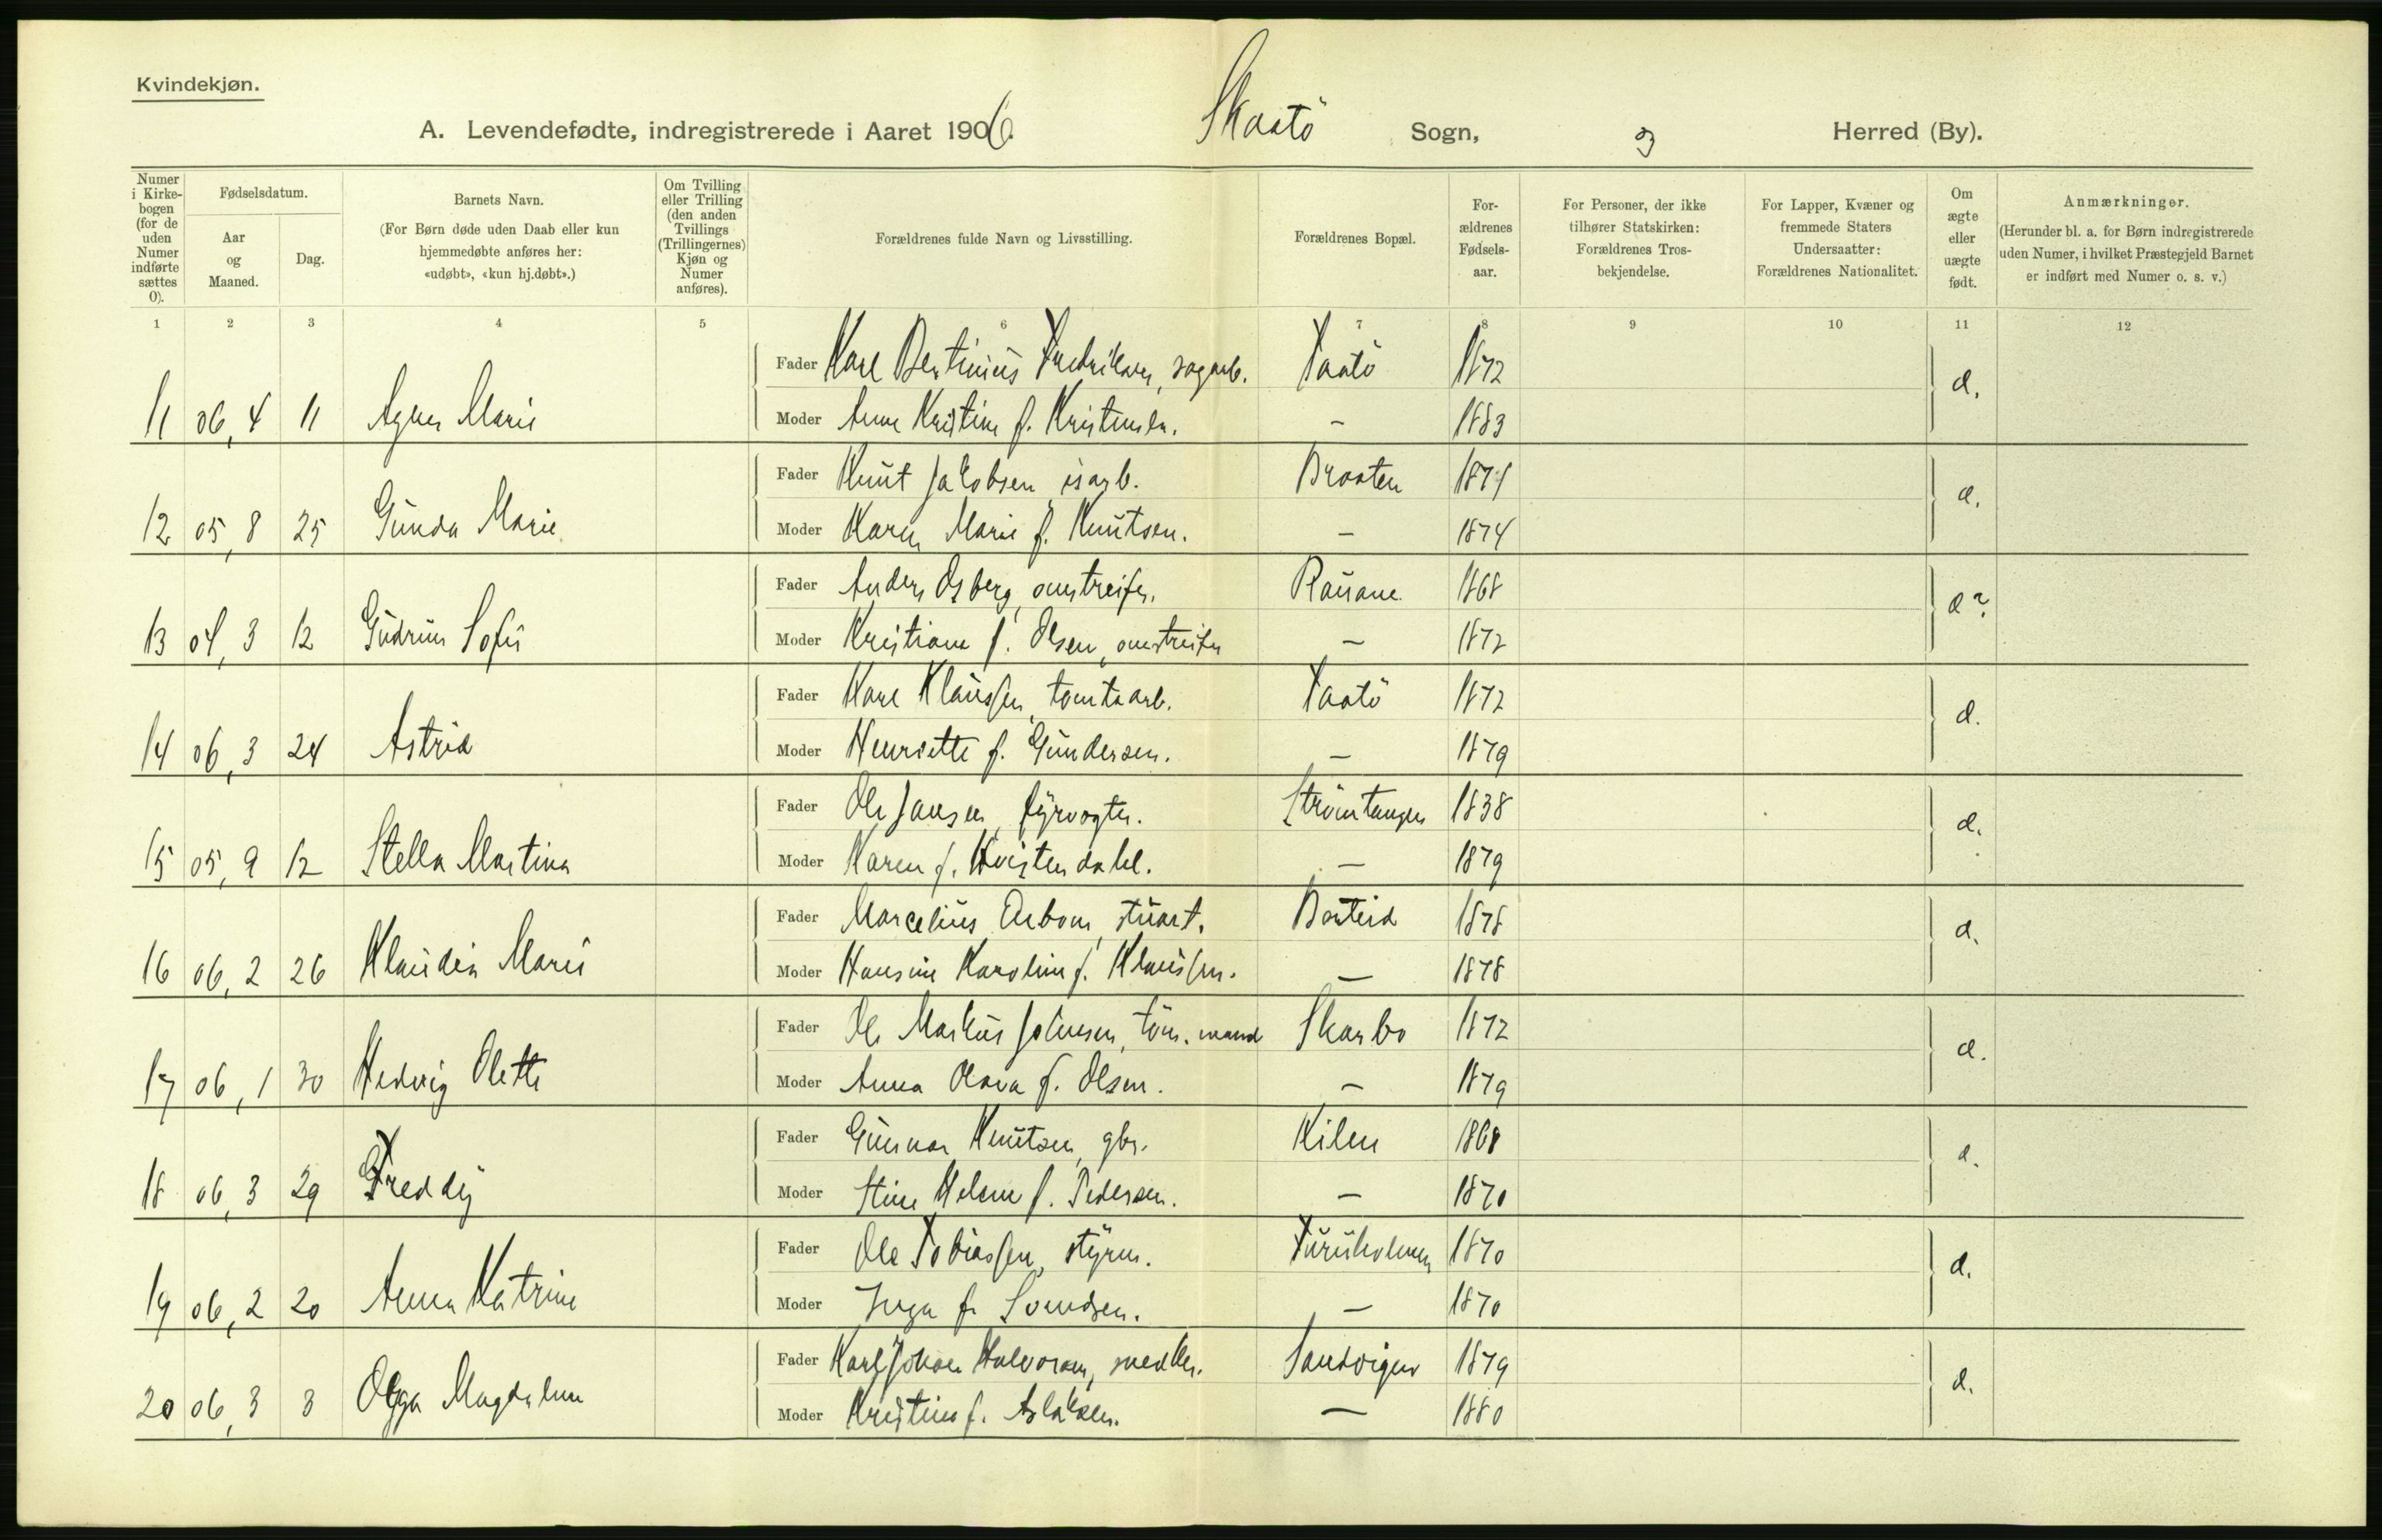 Kvindekjøn.
A. Levendefødte, indregistrerede i Aaret 1906. Skaatö Sogn, og Herred (By).
Numer i Kirkebogen (for de uden Numer indførte sættes 0).
Fødselsdatum.
Aar og Maaned.
Dag.
Barnets Navn.
(For Børn døde uden Daab eller kun hjemmedøbte anføres her: «udøbt», «kun hj.døbt».)
Om Tvilling eller Trilling (den anden Tvillings (Trillingernes) Kjøn og Numer anføres).
Forældrenes fulde Navn og Livsstilling.
Forældrenes Bopæl.
Forældrenes Fødselsaar.
For Personer, der ikke tilhører Statskirken: Forældrenes Trosbekjendelse.
For Lapper, Kvæner og fremmede Staters Undersaatter: Forældrenes Nationalitet.
Om ægte eller uægte født.
Anmærkninger.
(Herunder bl. a. for Børn indregistrerede uden Numer, i hvilket Præstegjeld Barnet er indført med Numer o. s. v.)
1 2 3 4 5 6 7 8 9 10 11 12
Fader Karl Bertinius Fredriksen, sagarb. Taatö 1872
11 06,4 11 Agnes Marie Moder Anne Kristine f. Kristensen. – 1883
Fader Knut Jakobsen, isarb. Braaten 1871
12 05,8 25 Gunda Marie Moder Karen Marie f. Knutsen. – 1874
Fader Anders Osberg, omstreifer. Rauane 1868
13 04,3 12 Gudrun Sofie Moder Kristiane f. Olsen, omstreifer – 1872
Fader Karl Klaussen, tomtearb. Taatö 1872
14 06,3 24 Astrid Moder Henriette f. Gundersen. – 1879
Fader Ole Jansen, fyrvogter. Strömtangen 1838
15 05,9 12 Stella Martina Moder Karen f. Kvistendahl. – 1879
Fader Marcelius stuart. 1878
16 06,2 26 Klaudia Marie Moder Hansine Karoline f. Klaussen. – 1878
Fader Ole Markus Johnsen, töm.mand Skarbo 1872
17 06,1 30 Hedvig Olette Moder Anna Olava f. Olsen. – 1879
Fader Gunnar Knutsen, gbr. Kilen 1868
18 06,3 29 Freddy Moder Stine Helene f. Pedersen. – 1870
Fader Ole Tobiassen, styrm. Furuholmen 1870
19 06,2 20 Anna Katrine Moder Inga f. Svendsen. – 1870
Fader Karl Johan Halvorsen, snedker. Sandvigen 1879
20 06,3 3 Olga Magdalene Moder Kristine f. Aslaksen. – 1880